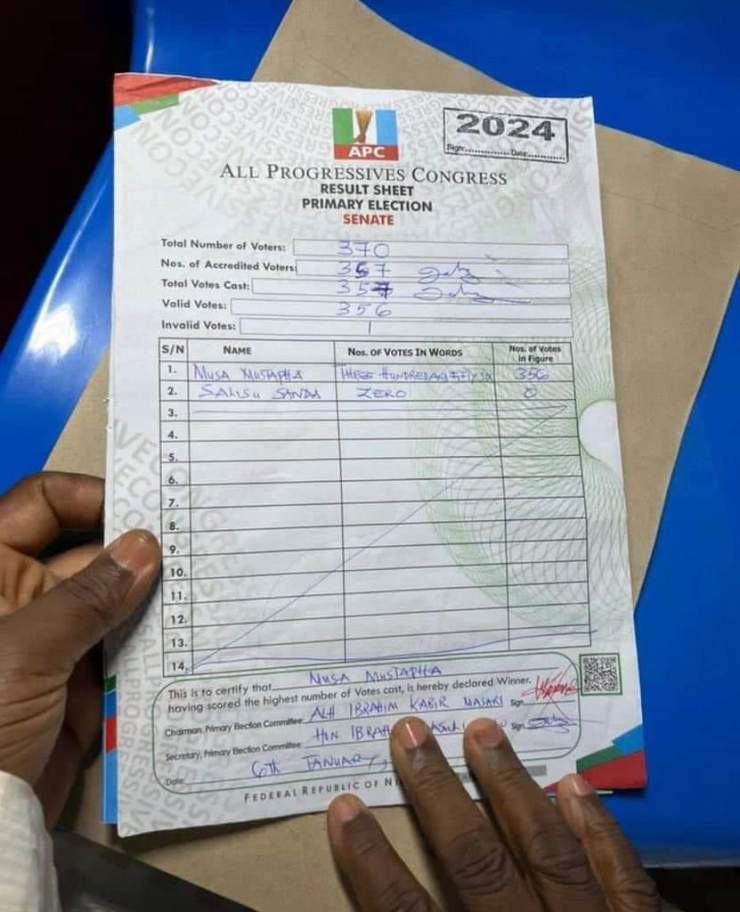 APC
2024
Sign:............... Date:............
ALL PROGRESSIVES CONGRESS
RESULT SHEET
PRIMARY ELECTION
SENATE
Total Number of Voters: 370
Nos. of Accredited Voters: 357
Total Votes Cast: 357
Valid Votes: 356
Invalid Votes: 1
S/N NAME NOS. OF VOTES IN WORDS Nos. of Votes in Figure
1. MUSA MUSTAPHA 356
2. SALISU SANDA ZERO 0
3.
4.
5.
6.
7.
8.
9.
10.
11.
12.
13.
14.
This is to certify that MUSA MUSTAPHA
having scored the highest number of Votes cast, is hereby declared Winner.
Chairman, Primary Election Committee: ALH IBRAHIM KABIR MASARI Sign
Secretary, Primary Election Committee: HON IBRAH Sign
Date: 6th JANUARY,
FEDERAL REPUBLIC OF NI